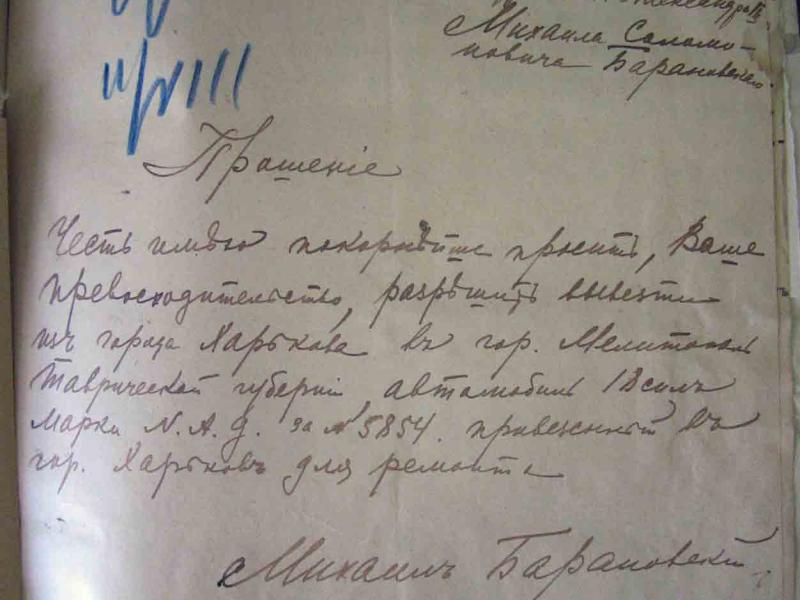 Михаила Соломо-
новича Барановскаго
Прошеніе
Честь имѣю покорнѣйше просить, Ваше
превосходительство, разрѣшить вывезти
изъ города Харькова въ гор. Мелитополь
Таврической губерніи, автомобиль 18 силъ
марки N.A.G. за № 5854. привезенный въ
гор. Харьковъ для ремонта
Михаилъ Барановскій.